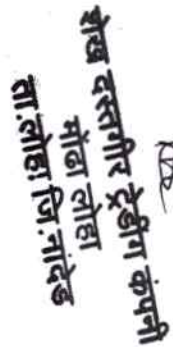 शेख दस्तगीर ट्रेडींग कंपनी
मोंढा लोहा
ता.लोहा जि.नांदेड